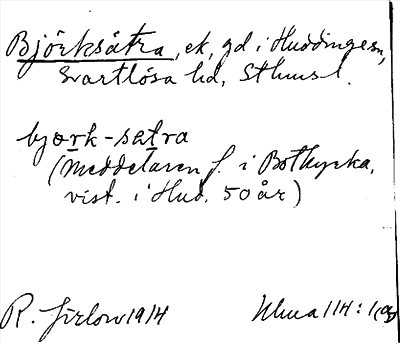 Björksätra, ek, gd i Huddinge sn,
Svartlösa hd, Sthms l.
bjørk-satra
(Meddelaren f. i Botkyrka,
vist. i Hud. 50 år)
R. Jirlow 1914 Ulma 114:1(9)